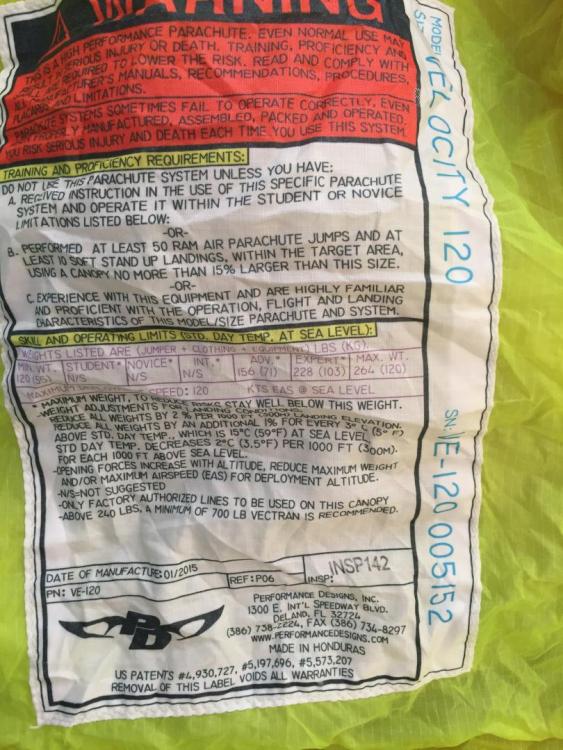 WARNING
THIS IS A HIGH PERFORMANCE PARACHUTE. EVEN NORMAL USE MAY
SERIOUS INJURY OR DEATH. TRAINING, PROFICIENCY AND
REQUIRED TO LOWER THE RISK. READ AND COMPLY WITH
MANUFACTURER'S MANUALS, RECOMMENDATIONS, PROCEDURES,
PLACARDS AND LIMITATIONS.
PARACHUTE SYSTEMS SOMETIMES FAIL TO OPERATE CORRECTLY, EVEN
PROPERLY MANUFACTURED, ASSEMBLED, PACKED AND OPERATED.
YOU RISK SERIOUS INJURY AND DEATH EACH TIME YOU USE THIS SYSTEM.
TRAINING AND PROFICIENCY REQUIREMENTS:
DO NOT USE THIS PARACHUTE SYSTEM UNLESS YOU HAVE:
A. RECEIVED INSTRUCTION IN THE USE OF THIS SPECIFIC PARACHUTE
SYSTEM AND OPERATE IT WITHIN THE STUDENT OR NOVICE
LIMITATIONS LISTED BELOW:
-OR-
B. PERFORMED AT LEAST 50 RAM AIR PARACHUTE JUMPS AND AT
LEAST 10 SOFT STAND UP LANDINGS, WITHIN THE TARGET AREA,
USING A CANOPY NO MORE THAN 15% LARGER THAN THIS SIZE.
-OR-
C. EXPERIENCE WITH THIS EQUIPMENT AND ARE HIGHLY FAMILIAR
AND PROFICIENT WITH THE OPERATION, FLIGHT AND LANDING
CHARACTERISTICS OF THIS MODEL/SIZE PARACHUTE AND SYSTEM.
SKILL AND OPERATING LIMITS (STD. DAY TEMP. AT SEA LEVEL):
WEIGHTS LISTED ARE (JUMPER + CLOTHING + EQUIPMENT) LBS (KG).
MIN. WT. STUDENT* NOVICE* INT.* ADV.* EXPERT* MAX. WT.
120 (55) N/S N/S N/S 156 (71) 228 (103) 264 (120)
MAXIMUM SPEED: 120 KTS EAS @ SEA LEVEL
* MAXIMUM WEIGHT, TO REDUCE RISKS STAY WELL BELOW THIS WEIGHT.
WEIGHT ADJUSTMENTS FOR LANDING CONDITIONS:
REDUCE ALL WEIGHTS BY 2% PER 1000 FT LANDING ELEVATION.
REDUCE ALL WEIGHTS BY AN ADDITIONAL 1% FOR EVERY 3°C (5°F)
ABOVE STD. DAY TEMP., WHICH IS 15°C (59°F) AT SEA LEVEL
STD DAY TEMP. DECREASES 2°C (3.5°F) PER 1000 FT (300M).
FOR EACH 1000 FT ABOVE SEA LEVEL.
-OPENING FORCES INCREASE WITH ALTITUDE, REDUCE MAXIMUM WEIGHT
AND/OR MAXIMUM AIRSPEED (EAS) FOR DEPLOYMENT ALTITUDE.
-N/S=NOT SUGGESTED
-ONLY FACTORY AUTHORIZED LINES TO BE USED ON THIS CANOPY
-ABOVE 240 LBS, A MINIMUM OF 700 LB VECTRAN IS RECOMMENDED.
DATE OF MANUFACTURE: 01/2015
REF: P06
INSP: INSP142
PN: VE-120
PD
PERFORMANCE DESIGNS, INC.
1300 E. INT'L SPEEDWAY BLVD.
DELAND, FL 32724
(386) 738-2224, FAX (386) 734-8297
WWW.PERFORMANCEDESIGNS.COM
MADE IN HONDURAS
US PATENTS #4,930,727, #5,197,696, #5,573,207
REMOVAL OF THIS LABEL VOIDS ALL WARRANTIES
MODEL VELOCITY 120
SN: VE-120 005152